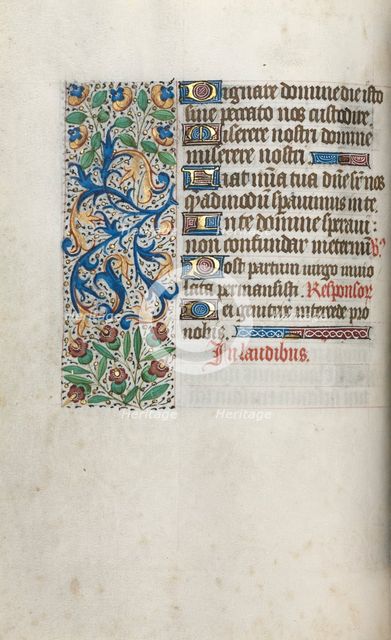 Dignare domine die isto
sine peccato nos custodire
Miserere nostri domine
miserere nostri
Fiat mīa tua dn̄e sr̄ nos
q̄adm̄odū sp̄auimus in te
In te domine speraui:
non confundar in eternū ℣.
Post partum uirgo inuio
lata permansisti. Responsor̄
Dei genitrix intercede pro
nobis.
In laudibus.
Heritage Heritage